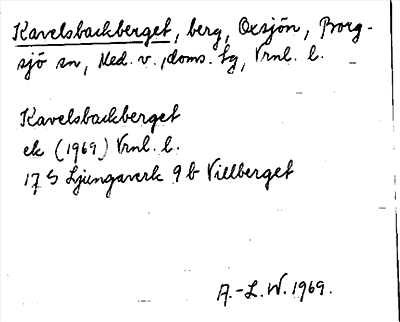 Kavelsbackberget, berg, Oxsjön, Borg-
sjö sn, Med. v., doms. tg, Vrnl. l.
Kavelsbackberget
ek (1969) Vrnl. l.
17 G Ljungaverk 9 b Villberget
A.-L. W. 1969.